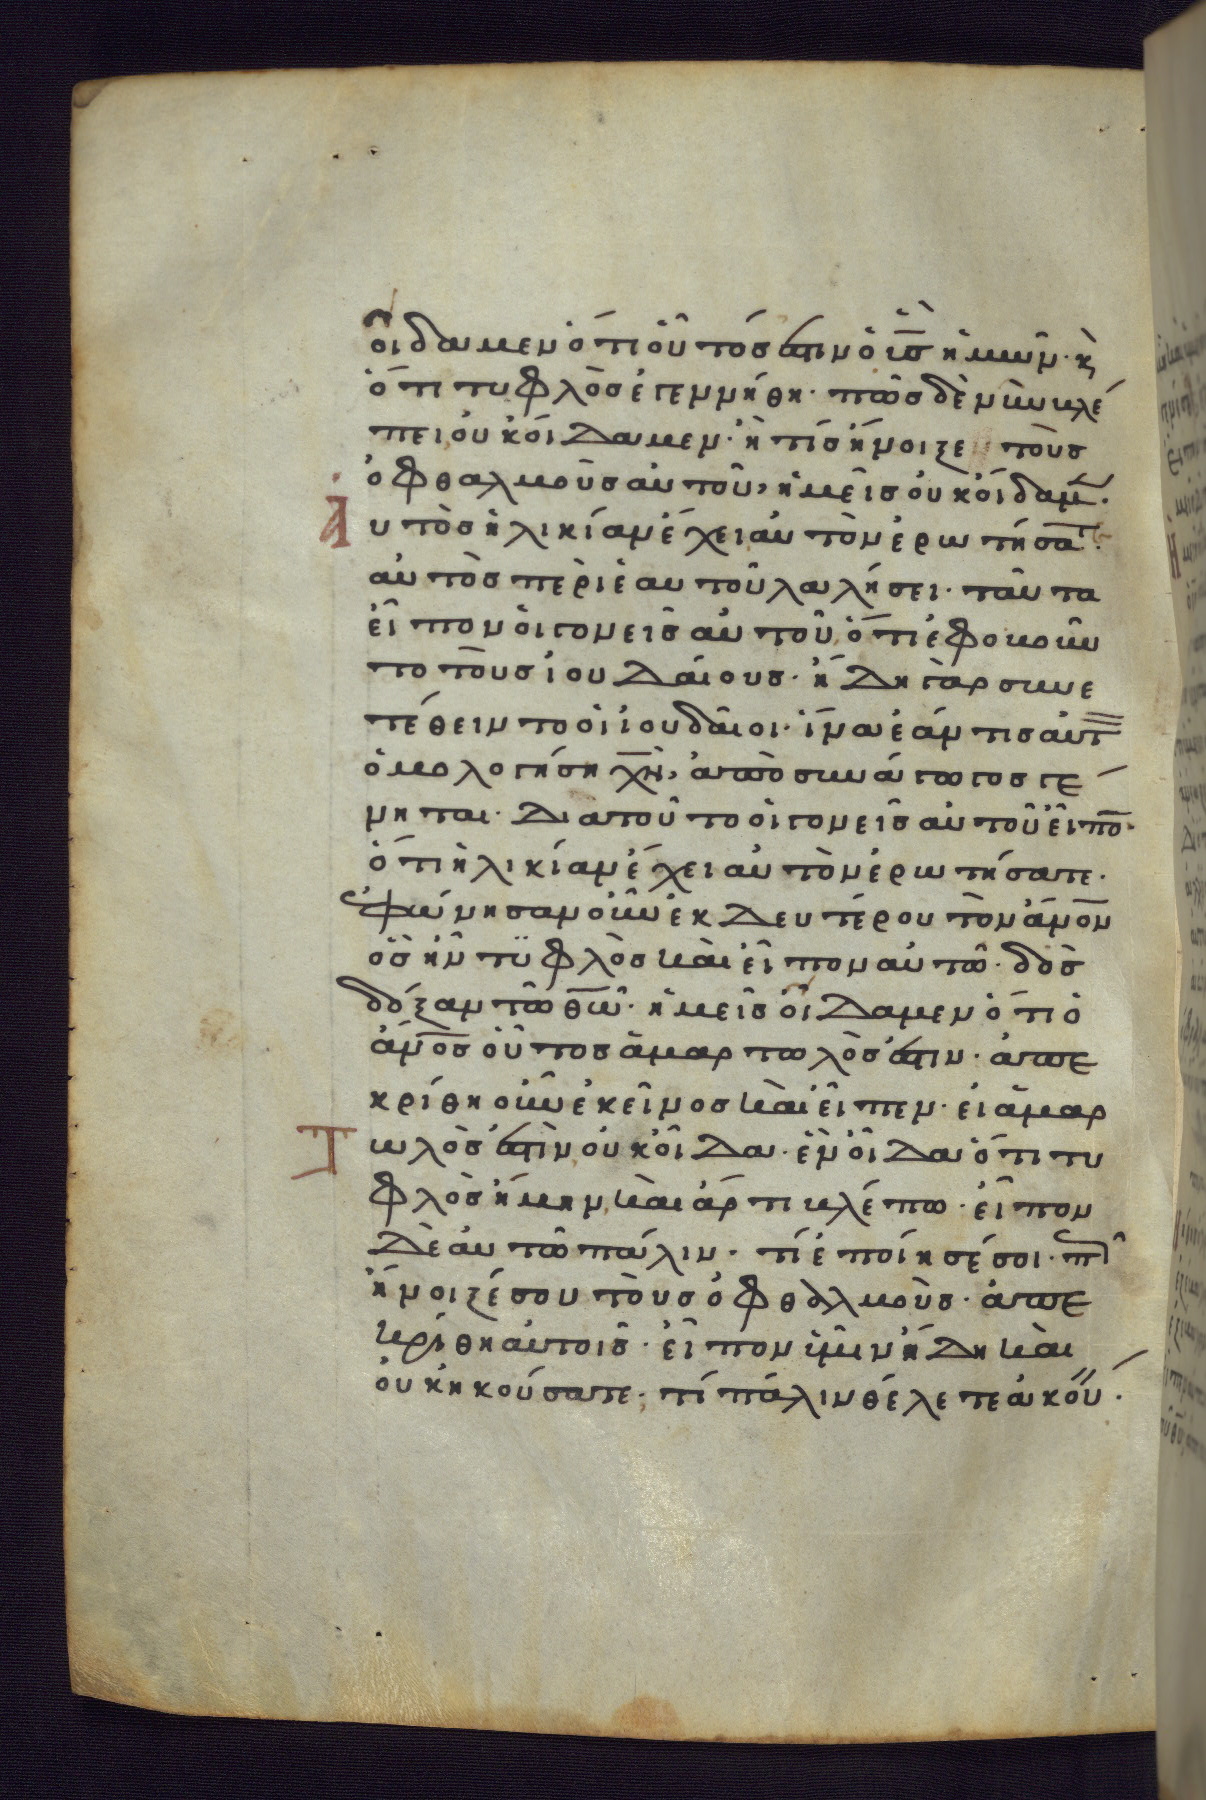 οἴδαμεν ὅτι οὗτός ἐστιν ὁ ὑ̅ς̅ ἡμῶν· κ̀
ὅτι τυφλὸς ἐγεννήθη· πῶς δὲ νῦν βλέ
πει, οὐκ οἴδαμεν· ἢ τίς ἤνοιξε τοὺς
ὀφθαλμοὺς αὐτοῦ, ἡμεῖς οὐκ οἴδαμ·
Αὐτὸς ἡλικίαν ἔχει αὐτὸν ἐρωτήσατ·
αὐτὸς περὶ ἑαυτοῦ λαλήσει· ταῦτα
εἶπον οἱ γονεῖς αὐτοῦ, ὅτι ἐφοβοῦν
το τοὺς ἰουδαίους· ἤδη γὰρ συνε
τέθειντο οἱ ἰουδαῖοι· ἵνα ἐάν τις αὐτ
ὁμολογήση χ̅ν̅, ἀποσυνάγωγος γέ
νηται· Διατοῦτο οἱ γονεῖς αὐτοῦ εἶπο·
ὅτι ἡλικίαν ἔχει αὐτὸν ἐρωτήσατε·
ἐφώνησαν οὖν ἐκ δευτέρου τὸν α̅ν̅ο̅ν̅
ὃς ἦν τυφλὸς καὶ εἶπον αὐτῶ· δὸς
δόξαν τῶ θ̅ω̅· ἡμεῖς οἴδαμεν ὅτι ὁ
α̅ν̅ο̅ς̅ οὗτος ἁμαρτωλός ἐστιν· ἀπε
κρίθη οὖν ἐκεῖνος καὶ εἶπεν· εἰ ἁμαρ
Τωλός ἐστιν οὐκ οἶδα· ἓν οἶδα ὅτι τυ
φλὸς ἤμην, καὶ ἄρτι βλέπω· εἶπον
δὲ αὐτῶ πάλιν· τί ἐποίησέ σοι· π
ἤνοιξέ σου τοὺς ὀφθαλμούς· ἀπε
κρίθη αὐτοῖς· εἶπον ὑμῖν ἤδη καὶ
οὐκ ἠκούσατε· τί πάλιν θέλετε ἀκού·